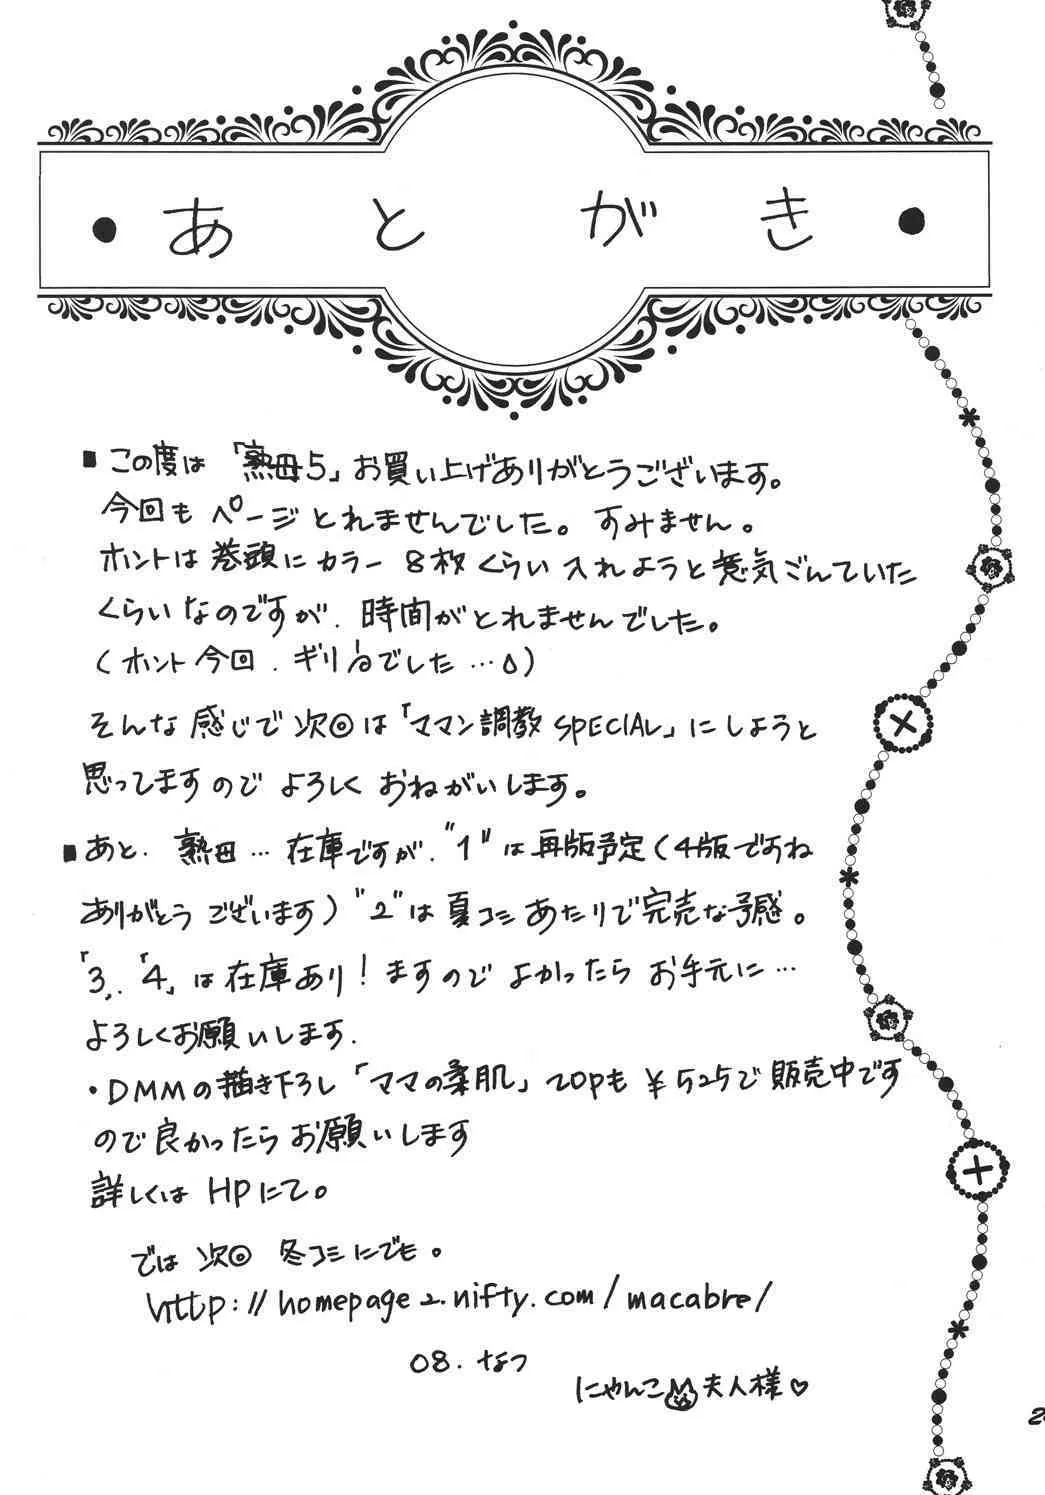 • あとがき •
■ この度は「熟母5」お買い上げありがとうございます。
今回もページとれませんでした。すみません。
ホントは巻頭にカラー8枚くらい入れようと意気ごんていた
くらいなのですが、時間がとれませんでした。
(ホント今回、ギリギリでした…)
そんな感じで次回は「ママン調教SPECIAL」にしようと
思ってますのでよろしくおねがいします。
■ あと、熟母…在庫ですが、"1"は再版予定(4版ですね
ありがとうございます)"2"は夏コミあたりで完売な予感。
「3」、「4」は在庫あり!ますのでよかったらお手元に…
よろしくお願いします.
・DMMの描き下ろし「ママの柔肌」20pも¥525で販売中です
ので良かったらお願いします
詳しくは HPにて。
では次回 冬コミにでも。
http://homepage2.nifty.com/macabre/
08. なつ
にゃんこ夫人様♡